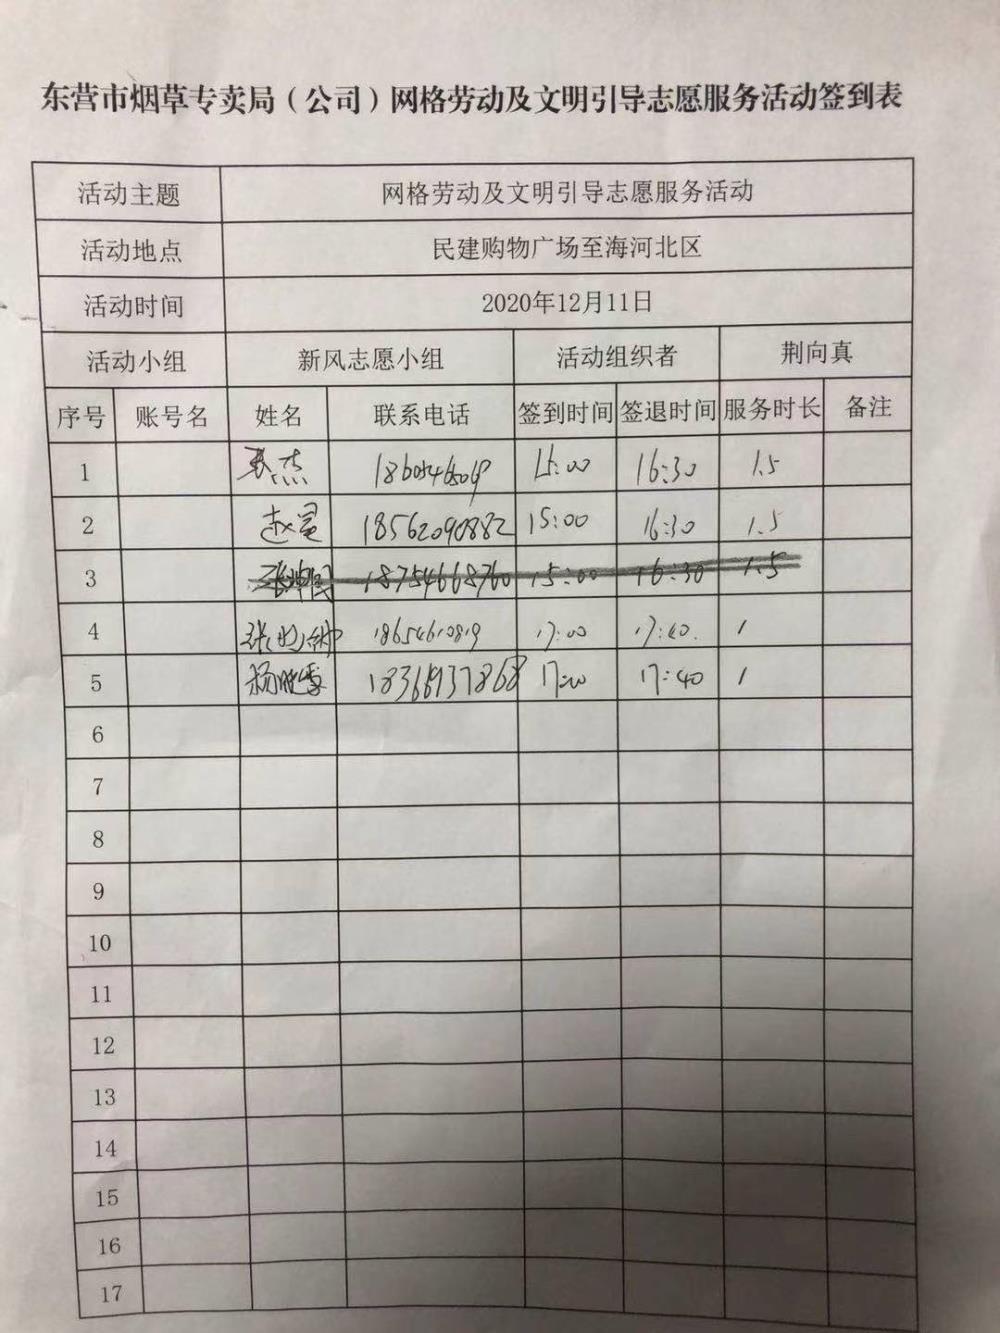 东营市烟草专卖局（公司）网格劳动及文明引导志愿服务活动签到表
活动主题 网格劳动及文明引导志愿服务活动
活动地点 民建购物广场至海河北区
活动时间 2020年12月11日
活动小组 新风志愿小组 活动组织者 荆向真
序号 账号名 姓名 联系电话 签到时间 签退时间 服务时长 备注
1 杰 15:00 16:30 1.5
2 赵 18562090882 15:00 16:30 1.5
3 18754668760 15:00 16:30 1.5
4 张 18654610819 17:00 17:40. 1
5 杨 17:00 17:40 1
6
7
8
9
10
11
12
13
14
15
16
17